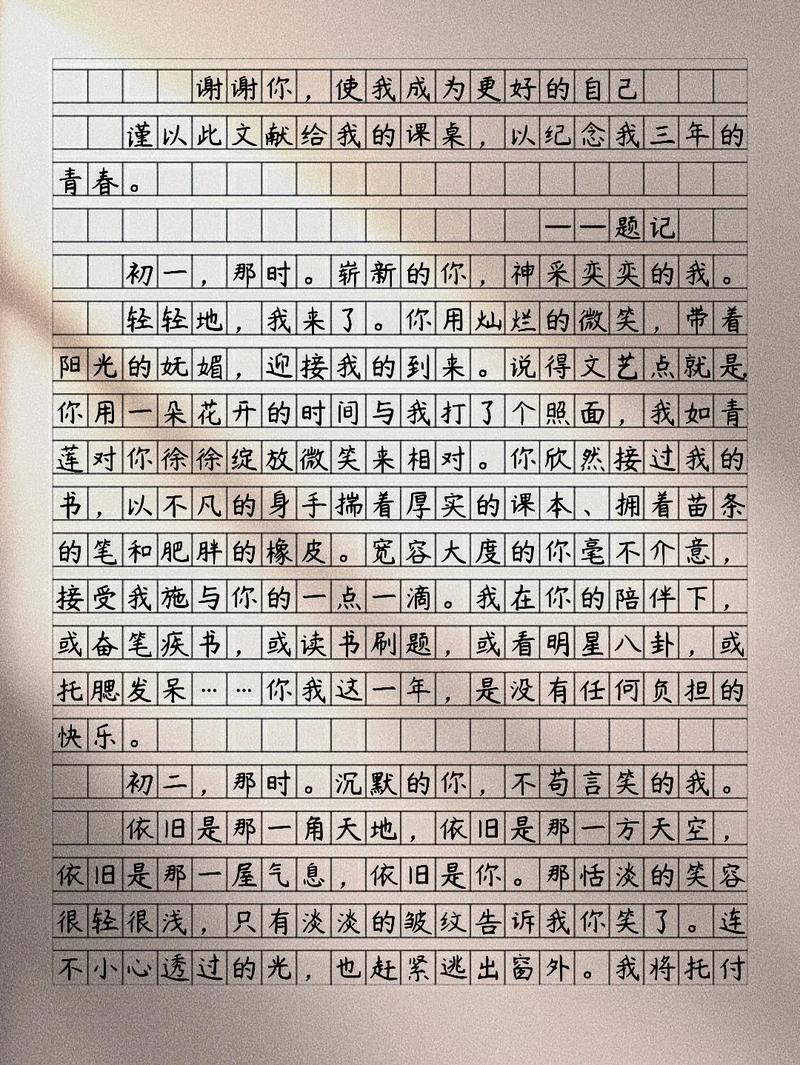 谢谢你，使我成为更好的自己
谨以此文献给我的课桌，以纪念我三年的
青春。
——题记
初一，那时。崭新的你，神采奕奕的我。
轻轻地，我来了。你用灿烂的微笑，带着
阳光的妩媚，迎接我的到来。说得文艺点就是，
你用一朵花开的时间与我打了个照面，我如青
莲对你徐徐绽放微笑来相对。你欣然接过我的
书，以不凡的身手揣着厚实的课本、拥着苗条
的笔和肥胖的橡皮。宽容大度的你毫不介意，
接受我施与你的一点一滴。我在你的陪伴下，
或奋笔疾书，或读书刷题，或看明星八卦，或
托腮发呆……你我这一年，是没有任何负担的
快乐。
初二，那时。沉默的你，不苟言笑的我。
依旧是那一角天地，依旧是那一方天空，
依旧是那一屋气息，依旧是你。那恬淡的笑容
很轻很浅，只有淡淡的皱纹告诉我你笑了。连
不小心透过的光，也赶紧逃出窗外。我将托付